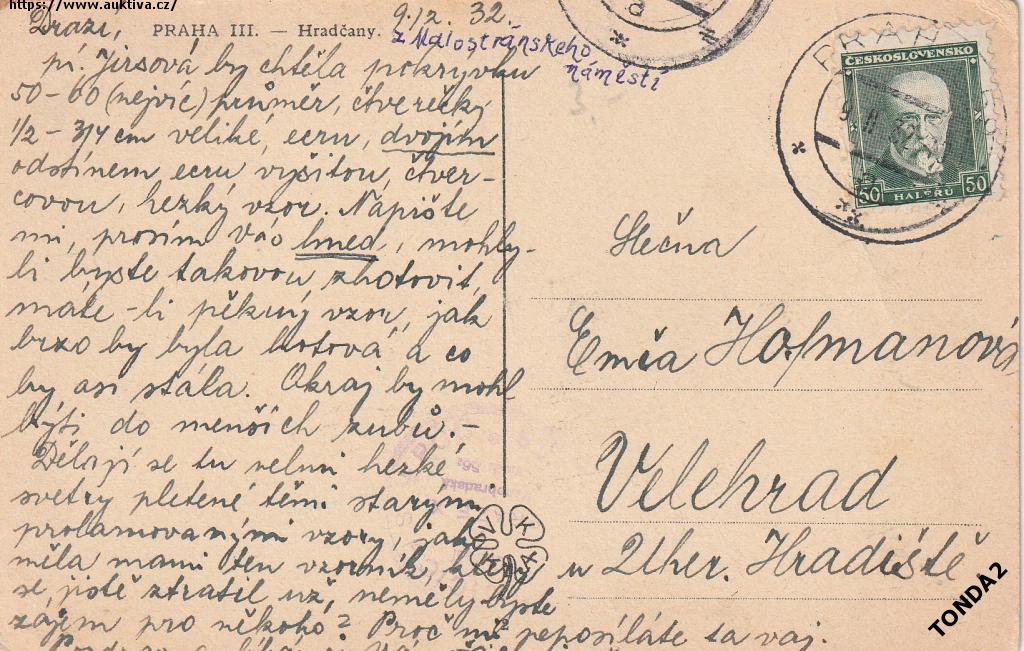 https://www.auktiva.cz/
Drazí,
PRAHA III. — Hradčany.
9./2. 32.
z Malostranského
náměstí
pí. Jirsová by chtěla pokrývku
50-60 (nejvíc) průměr, čtverečky
1/2 - 3/4 cm veliké, ecru, dvojím
odstínem ecru vyšitou, čtver-
covou, hezký vzor. Napište
mi, prosím vás hned, mohly-
li byste takovou zhotovit,
máte-li pěkný vzor, jak
brzo by byla hotová a co
by asi stála. Okraj by mohl
býti do menších zubů. -
Dělají se tu velmi hezké
svetry pletené těmi starými
prolamovanými vzory, jak
měla mami ten vzorník, který
se jistě ztratil už, neměly byste
zájem pro někoho? Proč mi neposíláte ta vaj.
PRAHA
ČESKOSLOVENSKO
50 HALÉŘŮ 50
Slečna
Emča Hofmanová
Velehrad
u Uher. Hradiště
TONDA2